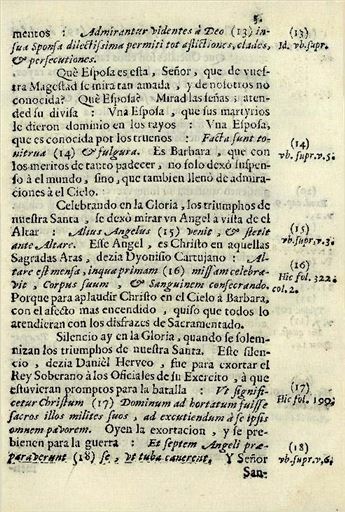 5.
mentos : Admirantur videntes à Deo (13) in-
sua Sponsa dilectissima permiti tot aflictiones, clades,
& persecutiones.
Què Esposa es esta , Señor, que de vues-
tra Magestad se mira tan amada , y de nosotros no
conocida? Què Esposa? Mirad las señas; aten-
ded su divisa : Vna Esposa , que sus martyrios
le dieron dominio en los rayos : Vna Esposa,
que es conocida por los truenos : Facta sunt to-
nitrua (14) & fulgura. Es Barbara , que con
los meritos de tanto padecer , no solo dexò suspen-
so à el mundo, sino, que tambien llenò de admira-
ciones à el Cielo.
Celebrando en la Gloria, los triumphos de
nuestra Santa , se dexò mirar vn Angel à vista de el
Altar : Alius Angelus (15) venit , & stetit
ante Altare. Esse Angel , es Christo en aquellas
Sagradas Aras, dezia Dyonisio Cartujano : Al-
tare est mensa, in qua primam (16) missam celebra-
vit , Corpus suum , & Sanguinem consecrando.
Porque para aplaudir Christo en el Cielo à Barbara,
con el afecto mas encendido , quiso que todos lo
atendieran con los disfrazes de Sacramentado.
Silencio ay en la Gloria, quando se solem-
nizan los triumphos de nuestra Santa. Este silen-
cio , dezia Daniel Herveo , fue para exortar el
Rey Soberano à los Oficiales de su Exercito , à que
estuvieran promptos para la batalla : Vt signifi-
cetur Christum (17) Dominum ad hortatum fuisse
sacros illos milites suos , ad excutiendum à se ipsis
omnem pavorem. Oyen la exortacion , y se pre-
bienen para la guerra : Et septem Angeli præ-
paraverunt (18) se , vt tuba canerent. Y Señor
San-
(13)
Id. vb. supr.
(14)
vb. supr. v. 5.
(15)
vb. supr. v. 3.
(16)
Hic fol. 322.
col. 2.
(17)
Hic fol. 190.
(18)
vb. supr. v. 6.